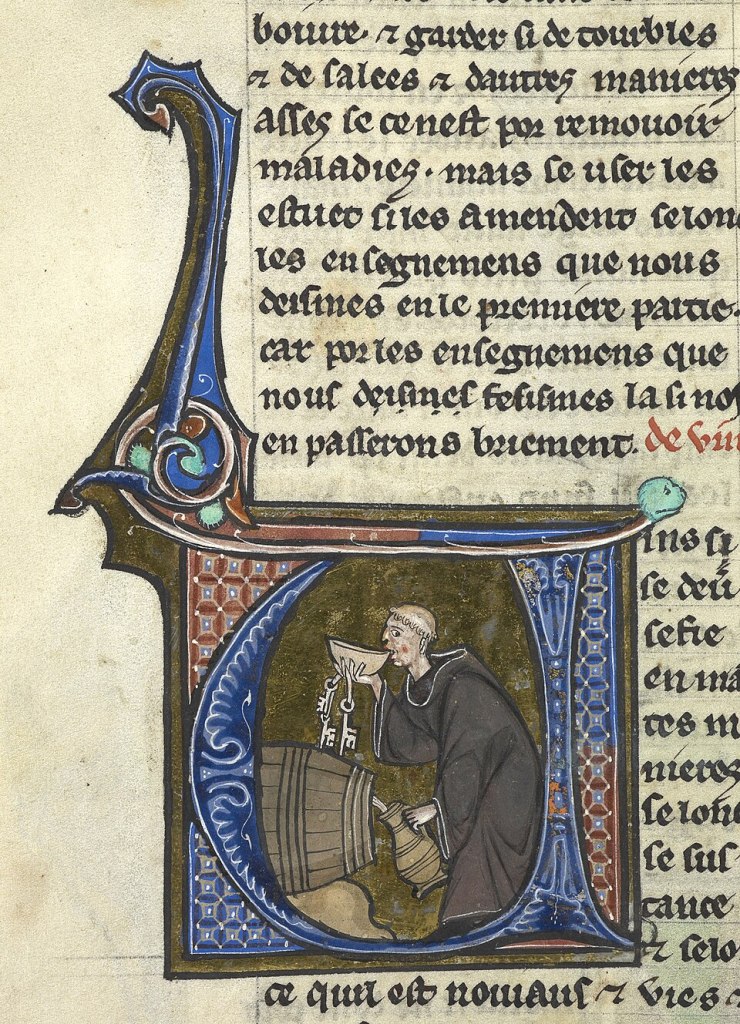 boiure ⁊ garder si de tourbles
⁊ de salees ⁊ dautres manieres
asses se ce nest por remouoir
maladies. mais se user les
estuet si les amendent selon
les ensegnemens que nous
deismes en le premiere partie.
car por les ensegnemens que
nous deismes fesismes la si nos
en passerons briement. de vin
ins si
se deu
sefie
en ma
tes m
nieres
selonc
se sus
tance
⁊ selo
ce quil est nouiaus ⁊ vies ⁊